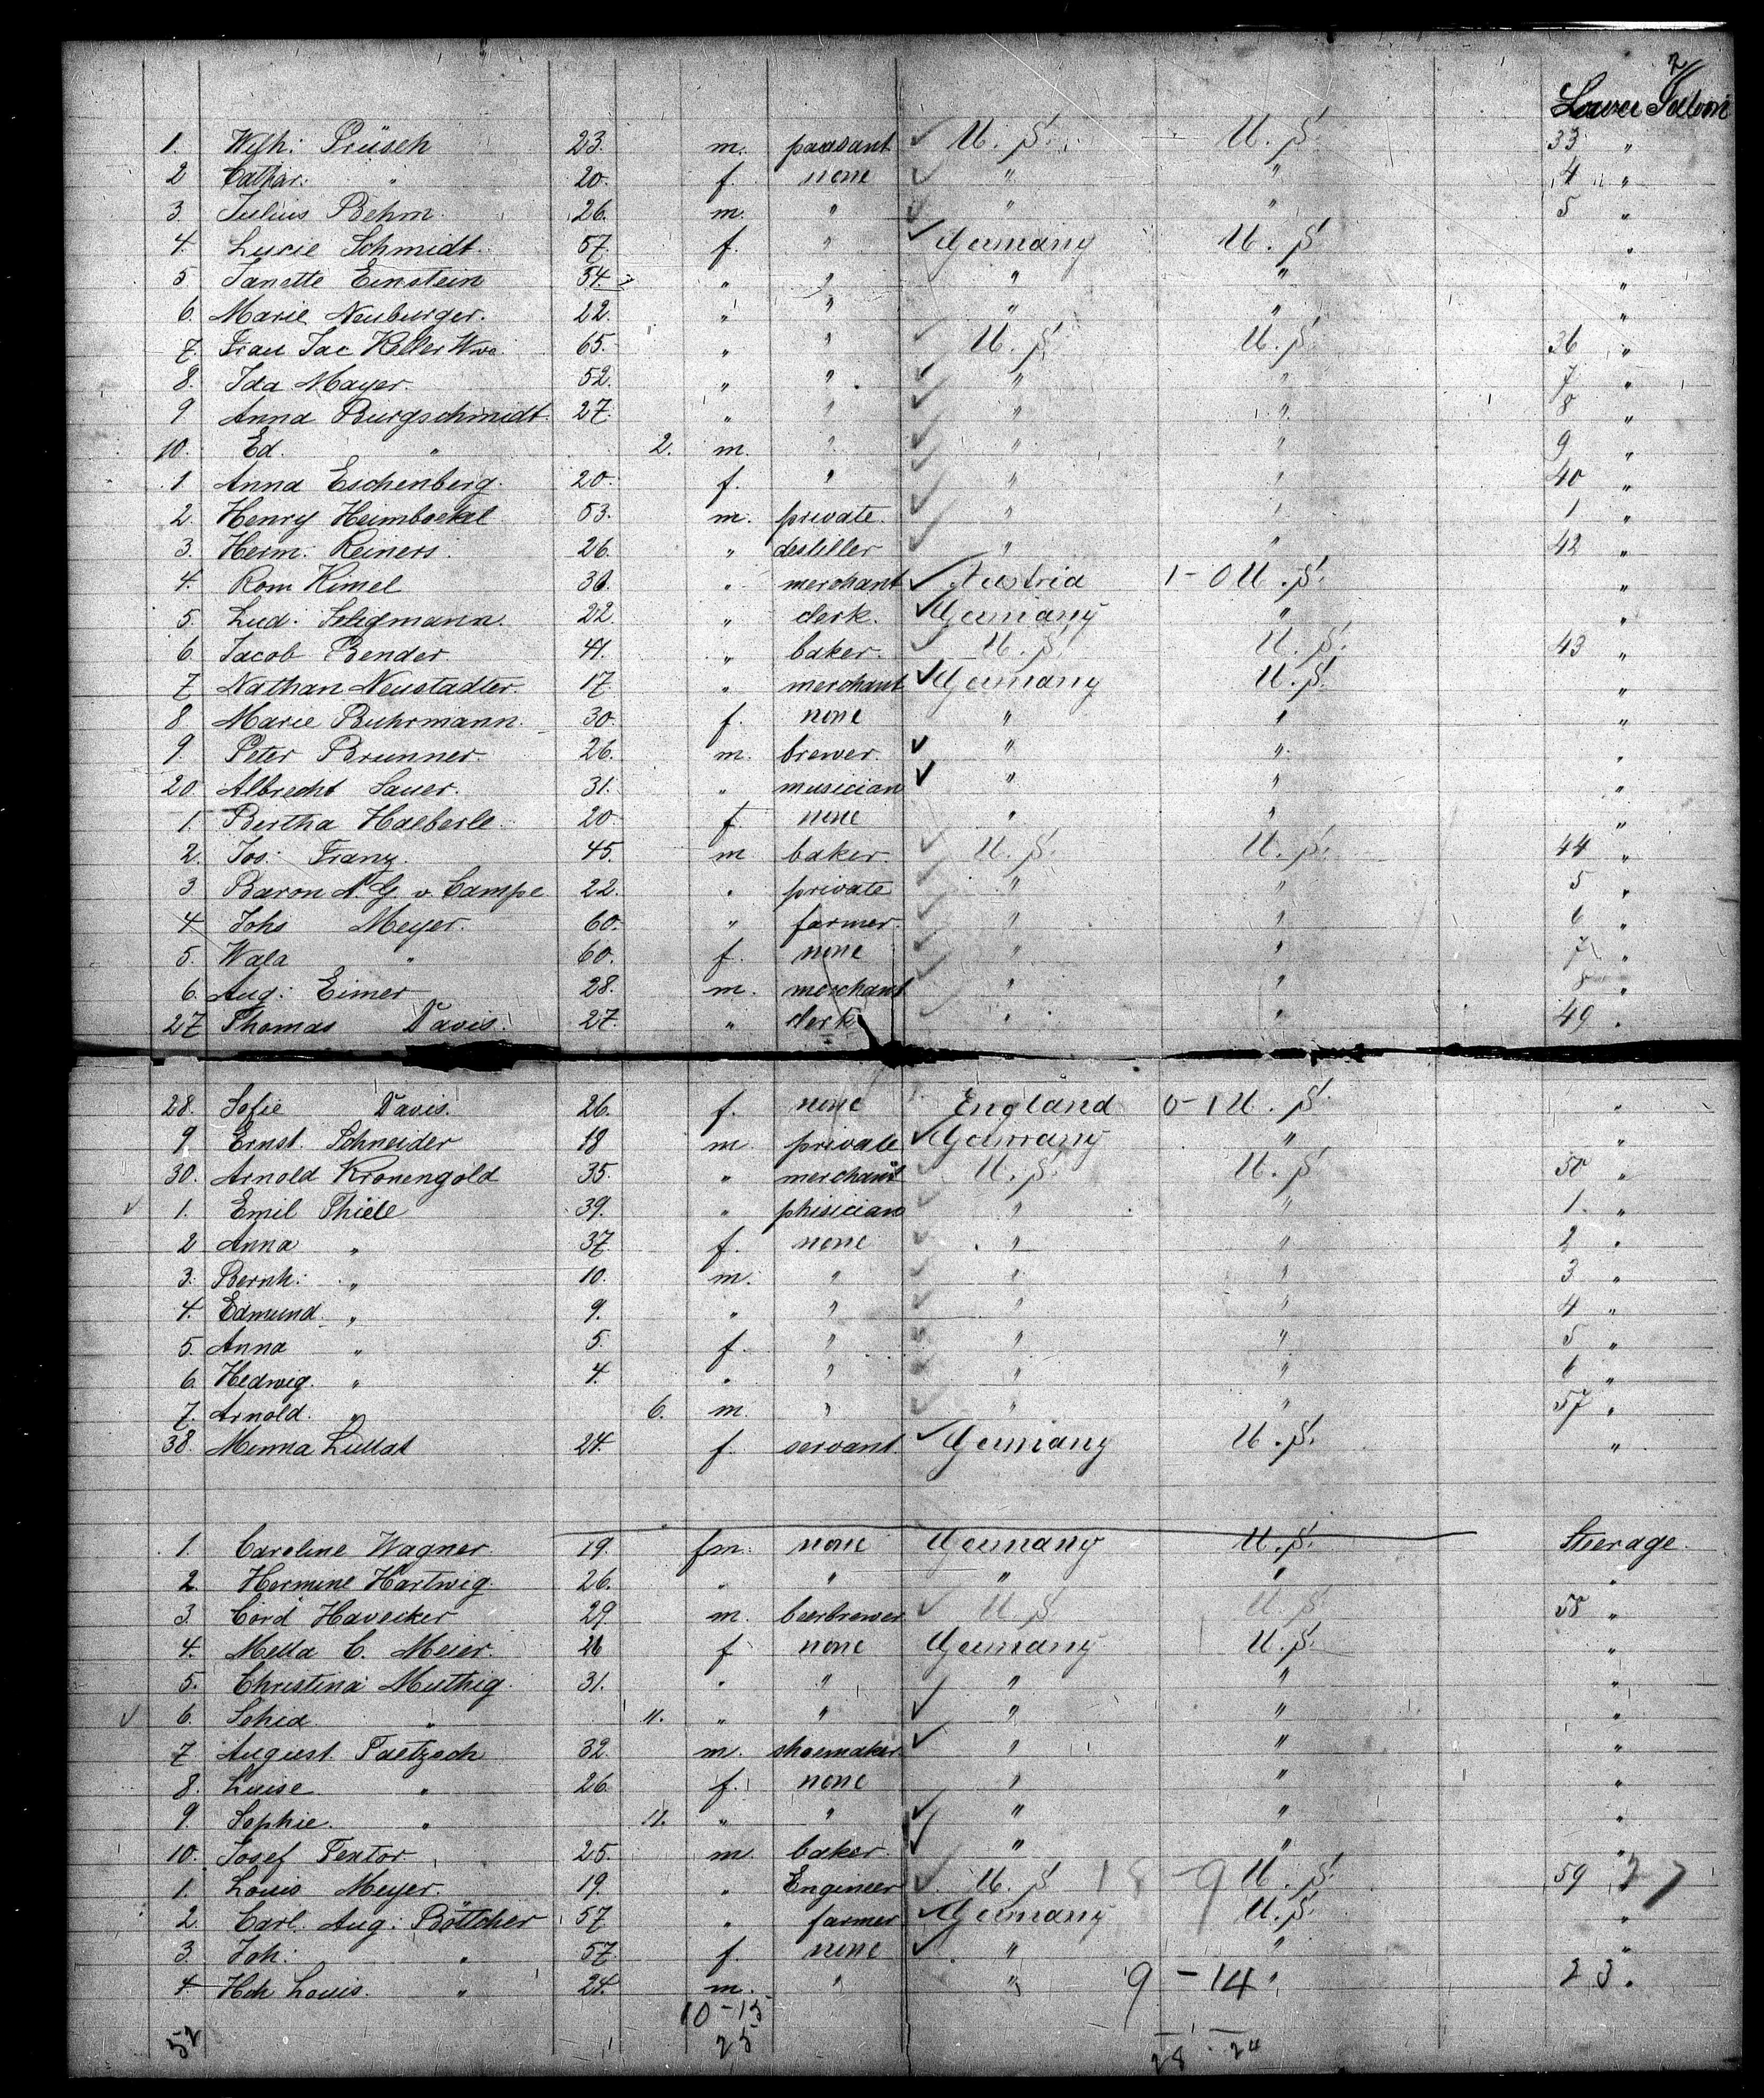 2
Lower Saloon
1. Wilh: Prüseh 23. m. paasant ✓ U. S. U. S. 33 "
2 Cathar: " 20. f. none ✓ " " 4 "
3. Julius Behm. 26. m. " ✓ " " 5 "
4. Lucie Schmidt. 57. f. " ✓ Germany U. S "
5 Janette Einstein 54. " " " " "
6. Marie Neuburger. 22. " " " " "
7. Frau Jac Keller Wwe. 65. " " ✓ U. S. U. S. 36 "
8. Ida Mayer. 52. " " ✓ " " 7 "
9 Anna Burgschmidt. 27. " " ✓ " " 8 "
10. Ed. " 2. m. " ✓ " " 9 "
1. Anna Eschenberg. 20. f. " ✓ " " 40 "
2. Henry Heimbockel 53. m. private. ✓ " " 1 "
3. Herm: Reiners. 26. " destiller ✓ " " 42 "
4. Rom Kimel " merchant ✓ Austria 1-0 U. S. "
5. Lud: Seligmann. 22. " clerk. ✓ Germany " "
6. Jacob Bender. 41. " baker. ✓ U. S. U. S. 43 "
7. Nathan Neustadter. 17. " merchant ✓ Germany U. S. "
8 Marie Buhrmann. 30. f. none " " "
9. Peter Brunner. 26. m. brewer. ✓ " " "
20. Albrecht Sauer. 31. " musician ✓ " " "
1. Bertha Haeberle. 20 f. none " " "
2. Jos: Franz. 45. m baker. ✓ U. S. U. S. 44 "
3. Baron A. G. v. Campe 22. " private ✓ " " 5 "
4 Johs Meyer. 60. " farmer. ✓ " " 6 "
5. Wala " 60. f. none ✓ " " 7 "
6. Aug: Eimer 28. m. merchant ✓ " " 8 "
27 Thomas Davis. 27. " clerk ✓ " " 49 "
28. Sofie Davis. 26. f. none England 0-1 U. S. "
9 Ernst. Schneider 18 m. private ✓ Germany " "
30. Arnold Kronengold 35. " merchant ✓ U. S. U. S 50 "
✓ 1. Emil Thiele 39. " phisician ✓ " " 1. "
2 Anna " 37. f. none ✓ " " 2 "
3. Bernh: " 10. m. " ✓ " " 3 "
4. Edmund. " 9. " " ✓ " " 4 "
5. Anna " 5. f. " ✓ " " 5 "
6. Hedwig. " 4. " " ✓ " " 6 "
7. Arnold. " 6. m. " ✓ " " 57 "
38. Minna Lullat 24. f. servant ✓ Germany U. S. "
1. Caroline Wagner. 19. fm. none Germany U. S. Steerage.
2. Hermine Hartwig. 26. " " " " "
3. Cord Havecker 29 m. beerbrewer ✓ U. S U. S 58 "
4. Metta C. Meier. f none Germany U. S. "
5. Christina Muthig. 31. " " " " "
✓ 6. " 11. " " ✓ " " "
7 August Paetzsch 32. m. shoemaker. ✓ " " "
8. Luise " 26. f. none " " "
9. Sophie. " 11. " " ✓ " " "
10. Josef Textor 25. m. baker. ✓ " " "
1. Louis Meyer. 19. " Engineer ✓ U. S 18-9 U. S. 59 27
2. Carl. Aug: Böttcher 57 " farmer ✓ Germany U. S. "
3. Joh: " 57. f. none ✓ " " "
4 Hch Louis. " 24. m. " " 9-14 " 23.
10-15
52 25 28-24